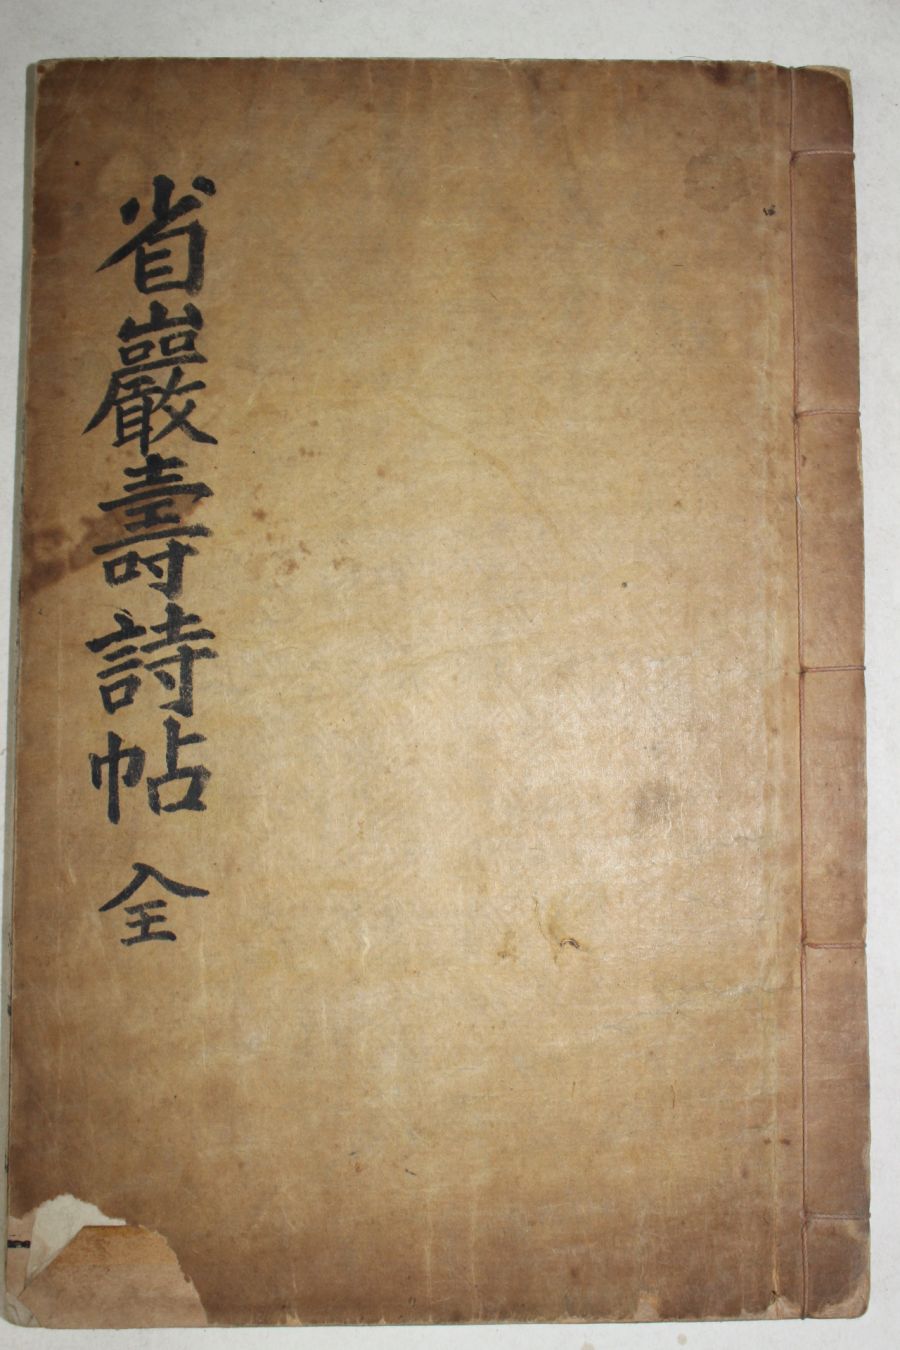 省巖壽詩帖 全